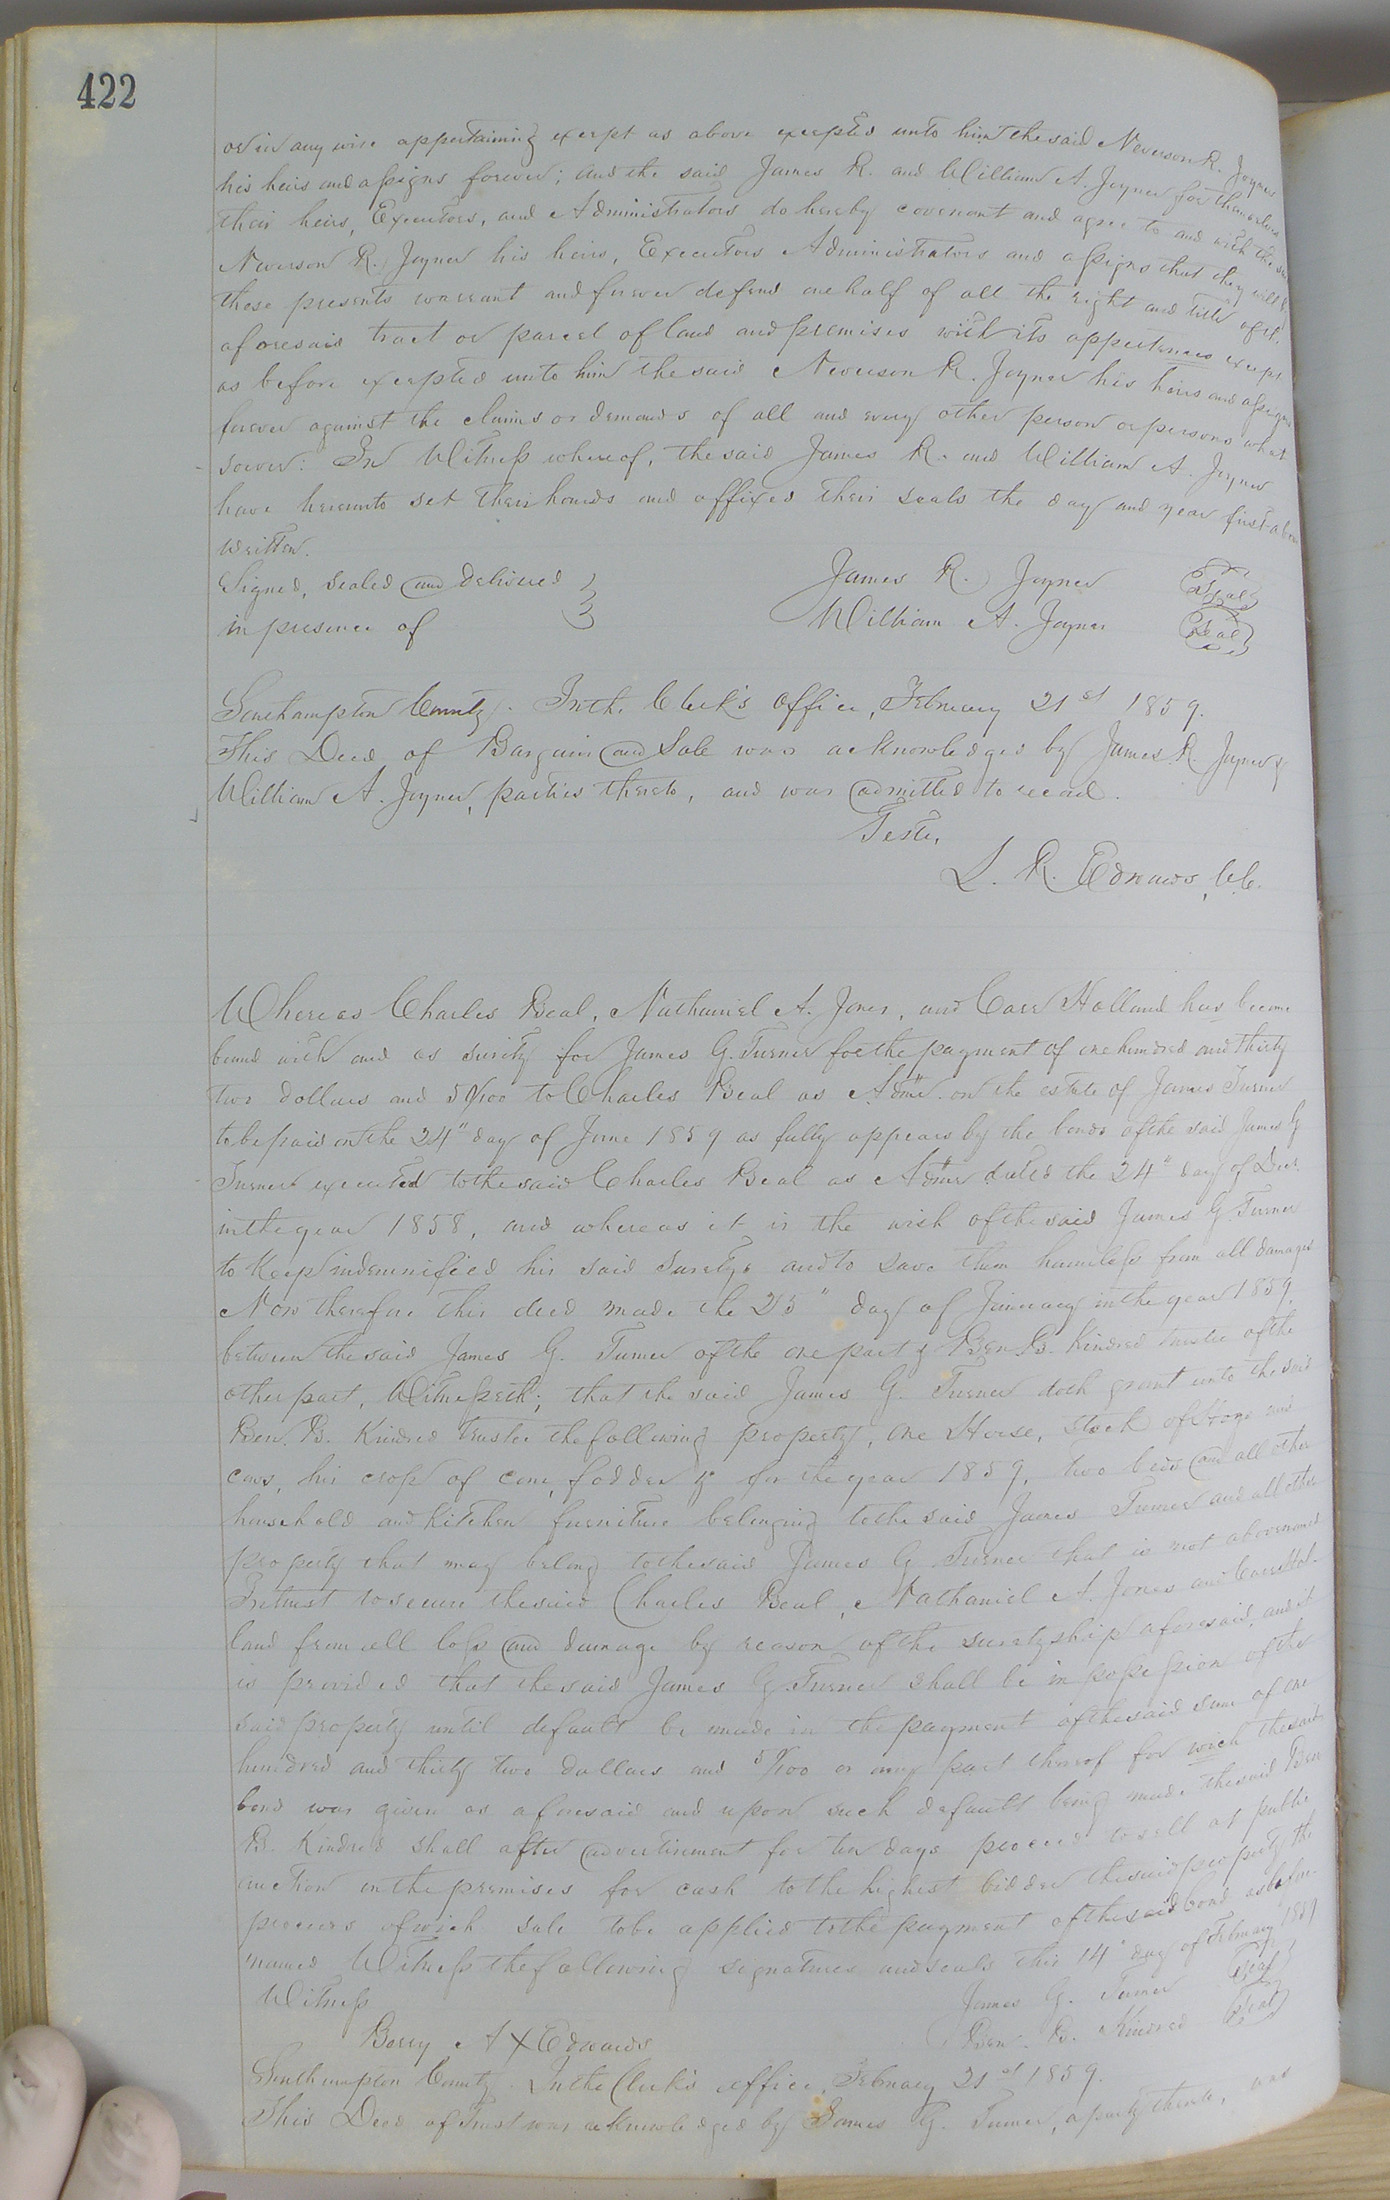 422
or in any wise appertaining except as above excepted unto him the said Neverson R. Joyner
his heirs and assigns forever; and the said James R. and William A. Joyner for themselves
their heirs, Executors, and Administrators do hereby covenant and agree to and with the said
Neverson R. Joyner his heirs, Executors Administrators and assigns that they will by
these presents warrant and forever defend one half of all the right and title of the
aforesaid tract or parcel of land and premises with its appertences except
as before excepted unto him the said Neverson R. Joyner his heirs and assigns
forever against the claims or demands of all and every other person or persons what
soever: In Witness whereof, the said James R. and William A. Joyner
have hereunto set their hands and affixed their seals the day and year first above
written.
Signed, sealed and delivered James R. Joyner Seal
in presence of William A. Joyner Seal
Southampton County. In the Clerk's office, February 21st 1859.
This Deed of Bargain and Sale was acknowledged by James R. Joyner &
William A. Joyner, parties thereto, and was admitted to record.
Teste,
L. R. Edwards, C.C.
Whereas Charles Beal, Nathaniel A. Jones, and Carr Holland has become
bound with and as surity for James G. Turner for the payment of one hundred and thirty
two dollars and 5/100 to Charles Beal as Admr. on the estate of James Turner
to be paid on the 24" day of June 1859 as fully appears by the bond of the said James G
Turner executed to the said Charles Beal as Admr dated the 24" day of Decr.
in the year 1858, and whereas it is the wish of the said James G. Turner
to keep indemnified his said suretys and to save them harmless from all damages
Now therefore this deed made the 25" day of January in the year 1859,
between the said James G. Turner of the one part & Ben. B. Kindred trustee of the
other part, Witnesseth; that the said James G. Turner doth grant unto the said
Ben. B. Kindred trustee the following property, one Horse, stock of Hogs and
cows, his crop of corn, fodder &c for the year 1859, two beds and all other
household and kitchen furniture belonging to the said James Turner and all other
property that may belong to the said James G Turner that is not abovenamed
In trust to secure the said Charles Beal, Nathaniel A. Jones and Carr Hol-
land from all loss and damage by reason of the suretyship aforesaid, and it
is provided that the said James G. Turner shall be in possession of the
said property until default be made in the payment of the said sum of one
hundred and thirty two dollars and 5/100 or any part thereof for wich the said
bond was given as aforesaid and upon such default being made the said Ben
B. Kindred shall after advertisement for ten days proceed to sell at public
auction on the premises for cash to the highest bidder the said property the
proceeds of wich sale to be applied to the payment of the said bond as before
named Witness the following signatures and seals this 14" day of February 1859
Witness James G. Turner Seal
Berry A X Edwards Ben. B. Kindred Seal
Southampton County. In the Clerk's office, February 21st 1859.
This Deed of Trust was acknowledged by James G. Turner, a party thereto, was